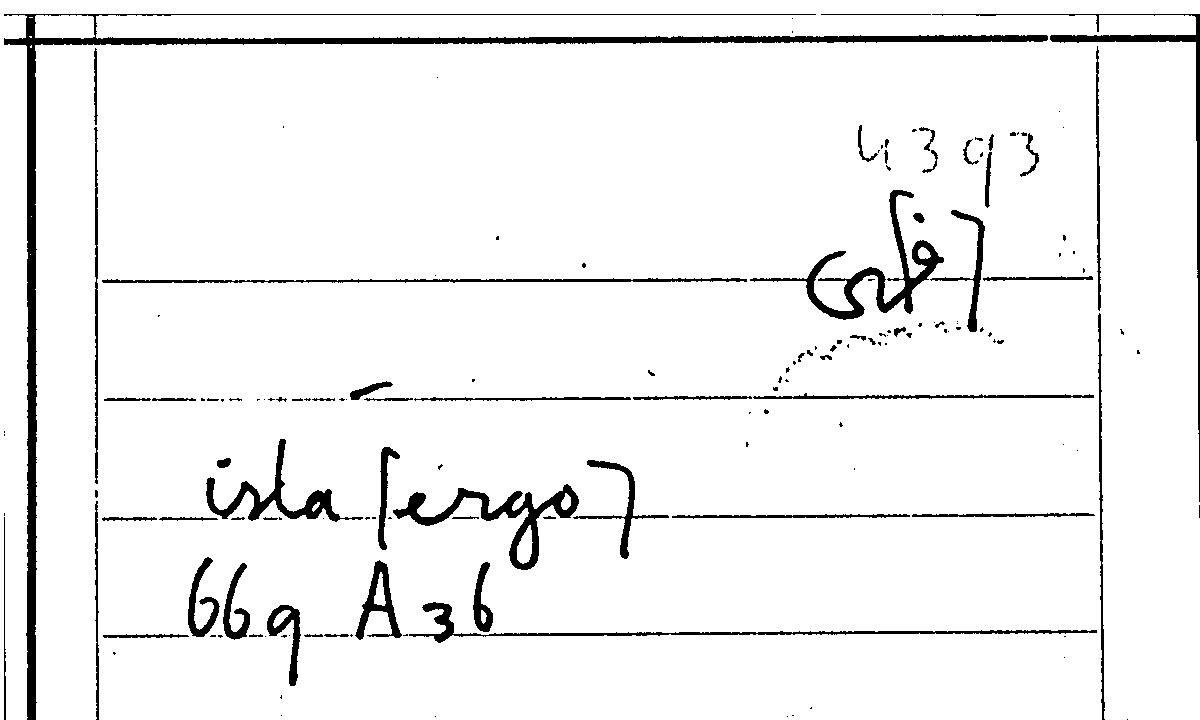 4393
ista [ergo]
669 A 36